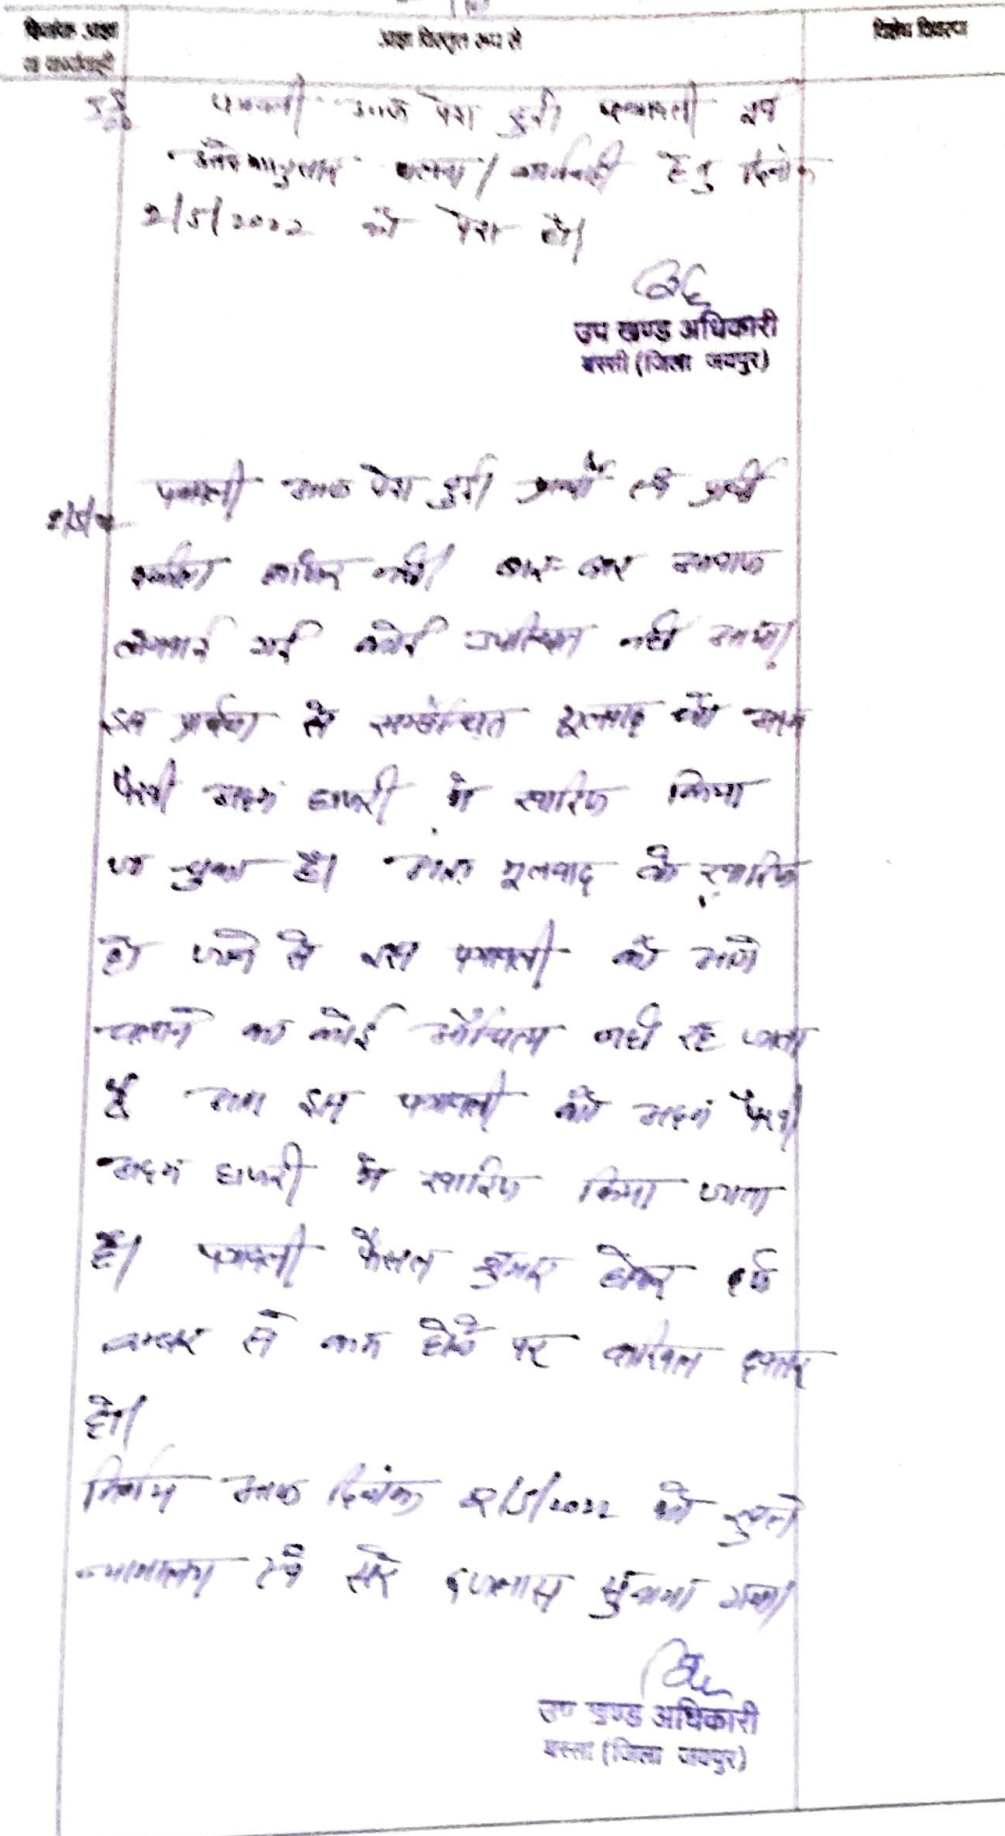 दिनांक आज्ञा
या कार्यवाही
आज्ञा विस्तृत रूप से
विशेष विवरण
पत्रावली आज पेश हुई। पत्रावली पूर्व
हेतु दिनांक
2/5/2022 को पेश हो।
उप खण्ड अधिकारी
बस्सी (जिला जयपुर)
2/5/22
पत्रावली आज पेश हुई।
हाजिर नहीं। बार-बार आवाज
लगवाई गई कोई उपस्थित नहीं आया।
इस प्रार्थना से सम्बन्धित मूलवाद को अदम
पैरवी अदम हाजरी में खारिज किया
जा चुका है। अतः मूलवाद के खारिज
हो जाने से इस पत्रावली को आगे
चलाने का कोई औचित्य नहीं रह जाता
है अतः इस पत्रावली को अदम पैरवी
अदम हाजरी में खारिज किया जाता
है। पत्रावली फैसल शुमार होकर दर्ज
नम्बर से कम होने पर दाखिल दफ्तर
हो।
निर्णय आज दिनांक 2/5/2022 को खुले
न्यायालय में सरे इजलास सुनाया गया।
उप खण्ड अधिकारी
बस्सी (जिला जयपुर)